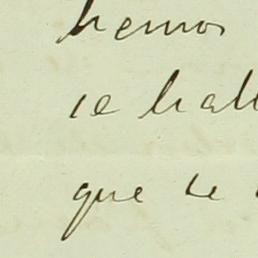 hemos
se hall
que se